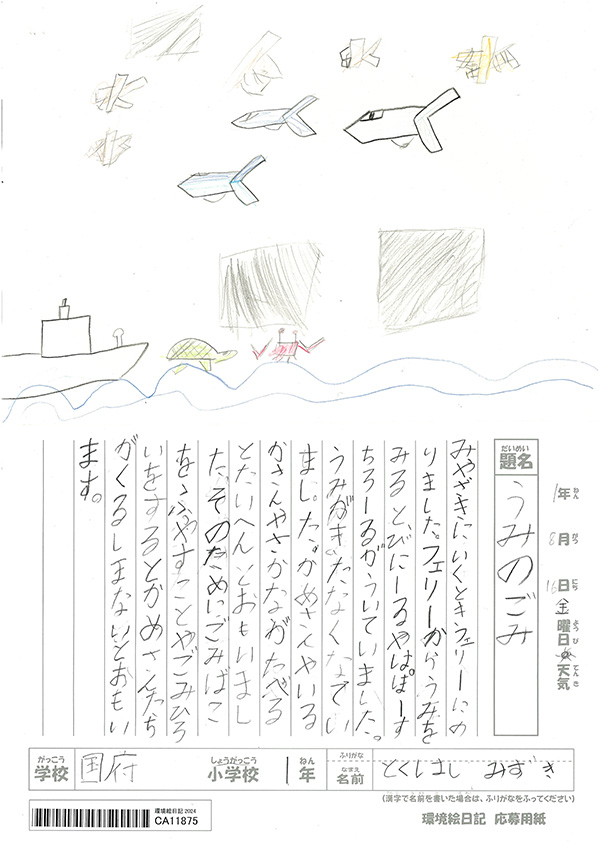 1年ねん 8月がつ 16日にち 金曜日ようび 天気てんき
だいめい
題名 うみのごみ
みやざきにいくときフェリーにの
りました。フェリーからうみを
みると、びにーるやはっぽーす
ちろーるがういていました。
うみがきたなくなってい
ました。かめさんやいる
かさんやさかながたべる
とたいへんとおもいまし
た。そのためにごみばこ
をふやすことやごみひろ
いをするとかめさんたち
がくるしまないとおもい
ます。
がっこう しょうがっこう ねん ふりがな
学校 国府 小学校 1年 なまえ 名前 とくはし みずき
(漢字で名前を書いた場合は、ふりがなをふってください)
環境絵日記 2024
CA11875
環境絵日記 応募用紙